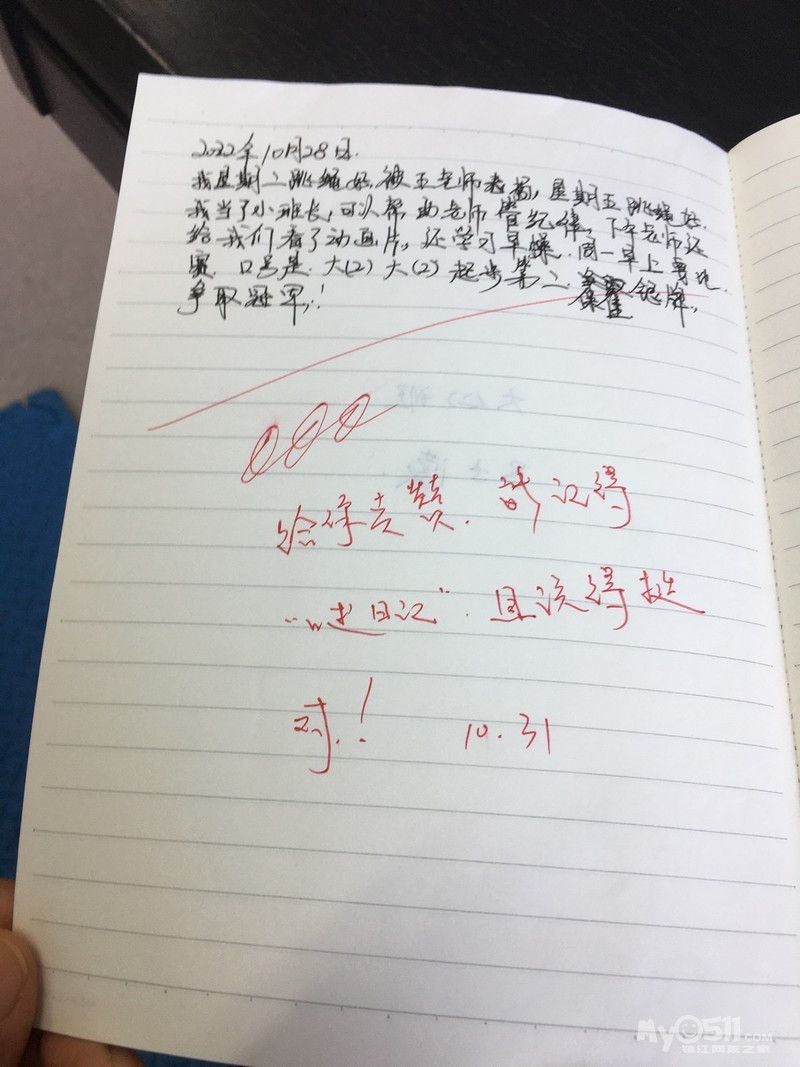 2022年10月28日.
我星期二跳绳好,被王老师表扬,星期五跳绳好.
我当了小班长,可以帮助老师管纪律,下午老师还
给我们看了动画片,还学习早操.周一早上要比
赛.口号是:大(2)大(2)起步第二银牌,
争取冠军,!
给你点赞.
记得
日记".且
得挺
!
10.31
My0511.COM
镇江网友之家